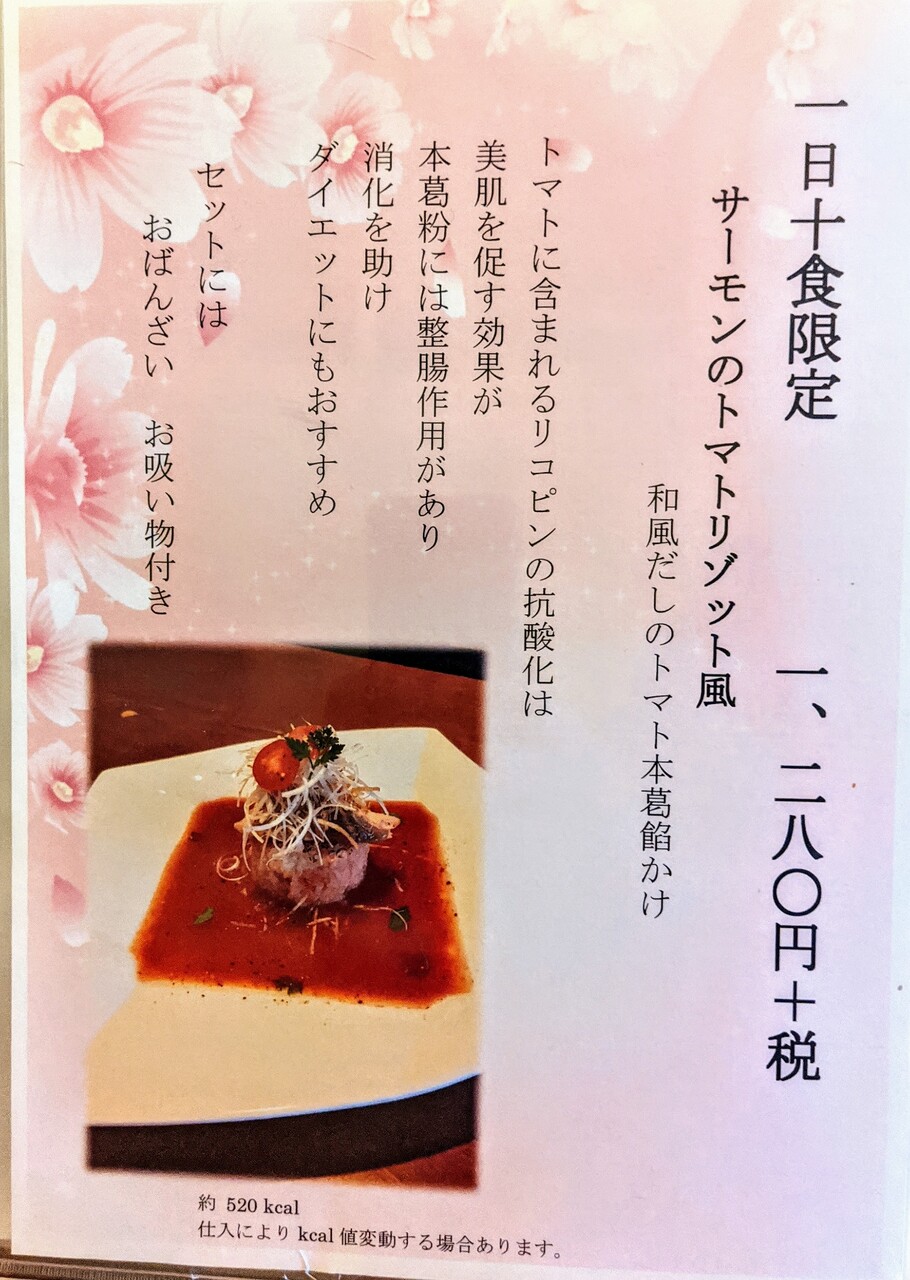 一日十食限定　一、二八〇円＋税
サーモンのトマトリゾット風
和風だしのトマト本葛餡かけ
トマトに含まれるリコピンの抗酸化は
美肌を促す効果が
本葛粉には整腸作用があり
消化を助け
ダイエットにもおすすめ
セットには
おばんざい　お吸い物付き
約 520 kcal
仕入により kcal 値変動する場合あります。